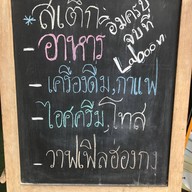 *สเต๊ก*
อิ่มครบ
จบที่
Laboon.
- อาหาร
- เครื่องดื่ม,กาแฟ
- ไอศครีม,โทส
- วาฟเฟิลฮ่องกง